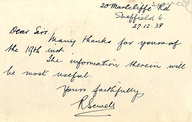 20 Marlcliffe Rd
Sheffield 6.
27.12.38
Dear Sir,
Many thanks for yours of
the 19th inst.
The information therein will
be most useful.
Yours faithfully
R Sewell